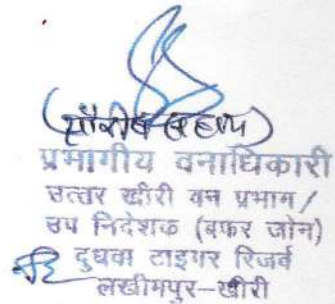 प्रभागीय वनाधिकारी
उत्तर खीरी वन प्रभाग /
उप निदेशक (बफर जोन)
दुधवा टाइगर रिजर्व
लखीमपुर-खीरी